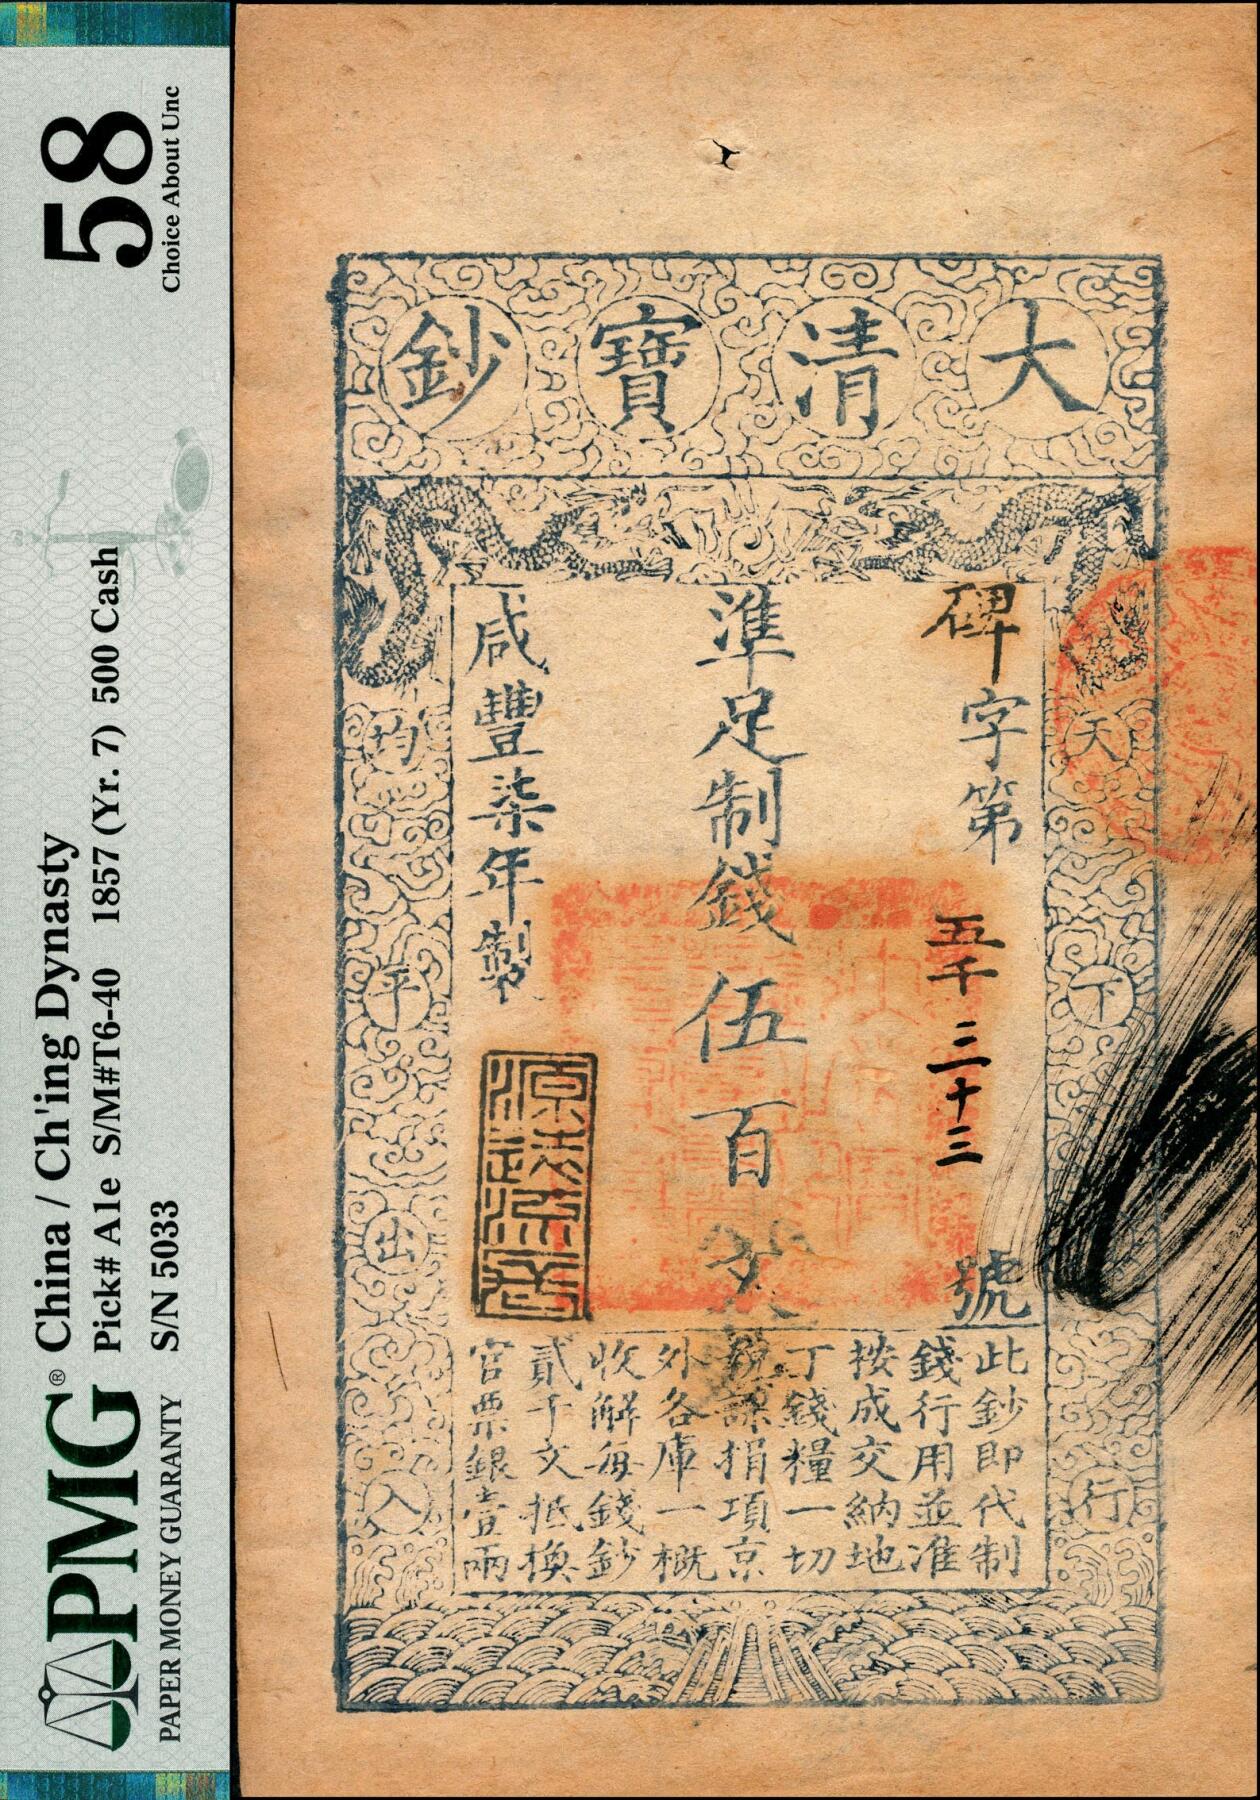 58
Choice About Unc
PMG®
PAPER MONEY GUARANTY
China / Ch'ing Dynasty
Pick# A1e S/M#T6-40 1857 (Yr. 7) 500 Cash
S/N 5033
大清寶鈔
天下行
均平出入
碑字第五千三十三號
準足制錢伍百文
咸豐柒年製
此鈔即代制
錢行用並准
按成交納地
丁錢糧一切
稅課捐項京
外各庫一概
收解每錢鈔
貳千文抵換
官票銀壹兩